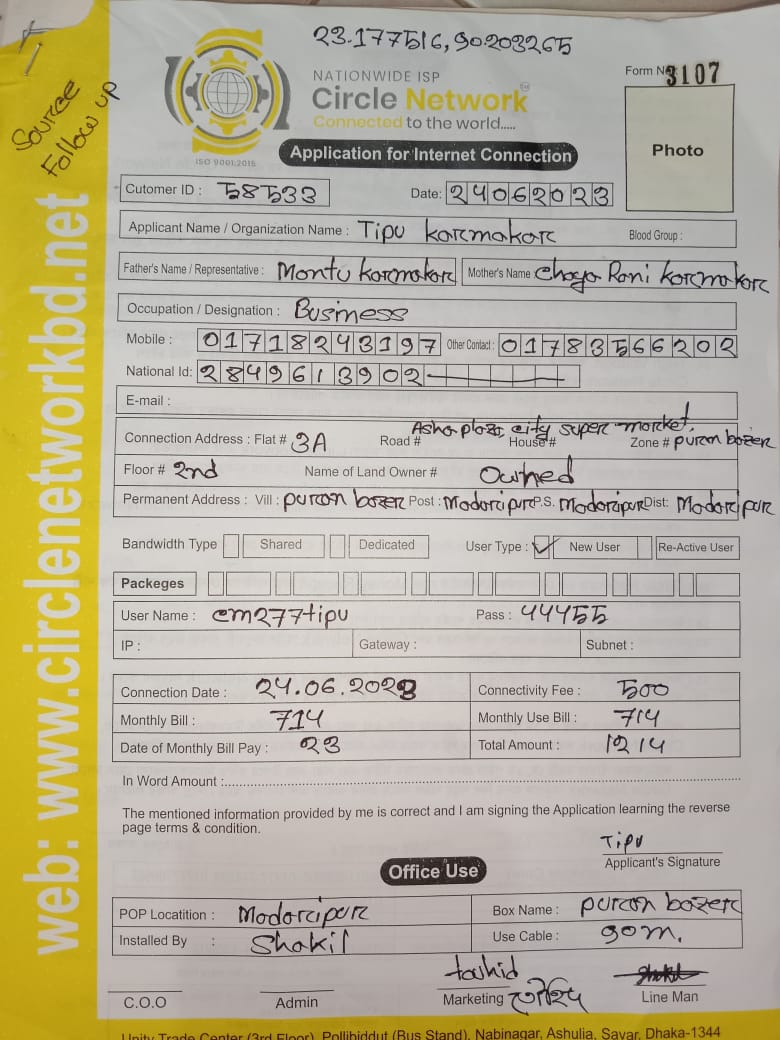 23.177516, 90.203265
Source
Follow up
NATIONWIDE ISP
Circle Network
Connected to the world.....
ISO 9001:2015
Form N 3107
Photo
Application for Internet Connection
Cutomer ID : 58533
Date: 24062023
Applicant Name / Organization Name : Tipu karmakar Blood Group :
Father's Name / Representative : Montu karmakar Mother's Name Chaya Rani karmakar
Occupation / Designation : Business
Mobile : 01718243197 Other Contact : 01783566202
National Id: 2849613902
E-mail :
Asha plaza, city super market.
Connection Address : Flat # 3A Road # House # Zone # puran bazer
Floor # 2nd Name of Land Owner # Owned
Permanent Address : Vill : puran bazer Post : Madaripur P.S. Madaripur Dist: Madaripur
Bandwidth Type Shared Dedicated User Type : ✓ New User Re-Active User
Packeges
User Name : cm277tipu Pass : 44455
IP : Gateway : Subnet :
Connection Date : 24.06.2023 Connectivity Fee : 500
Monthly Bill : 714 Monthly Use Bill : 714
Date of Monthly Bill Pay : 23 Total Amount : 1214
In Word Amount :
The mentioned information provided by me is correct and I am signing the Application learning the reverse
page terms & condition.
Tipu
Applicant's Signature
Office Use
POP Locatition : Madaripur Box Name : puran bazer
Installed By : Shakil Use Cable : 90m.
C.O.O Admin Marketing Line Man
Unity Trade Center (3rd Floor), Pollibiddut (Bus Stand), Nabinagar, Ashulia, Savar, Dhaka-1344
web: www.circlenetworkbd.net